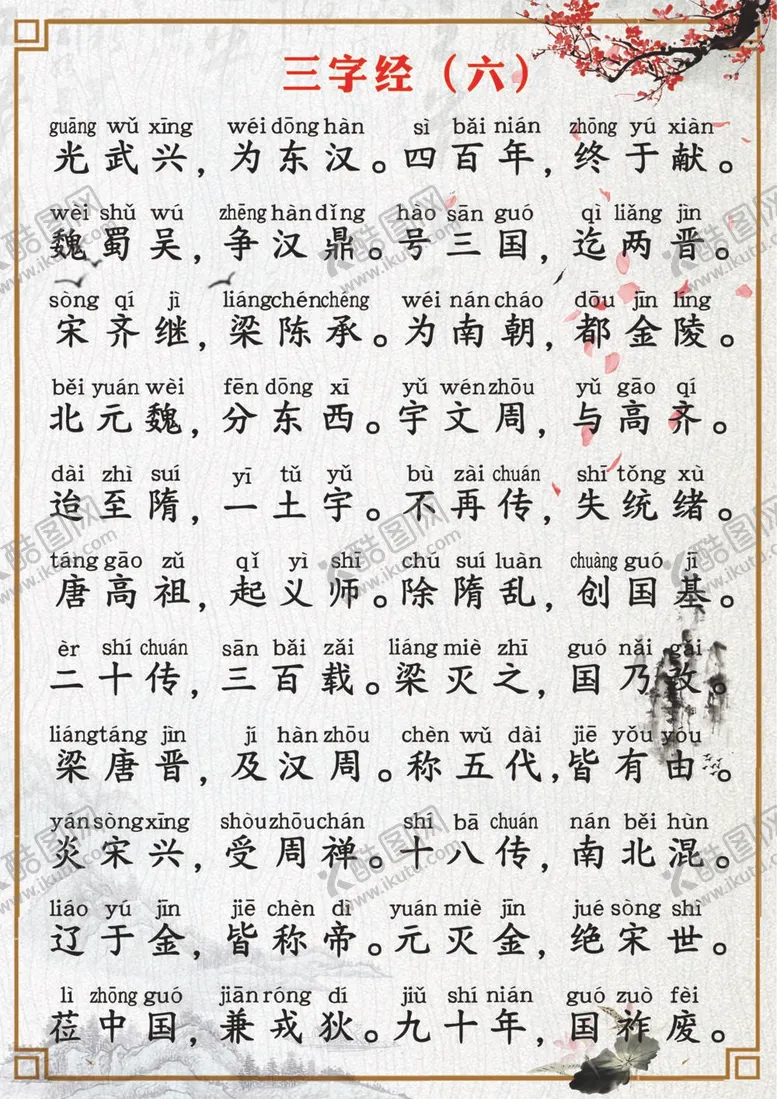 三字经（六）
guāng wǔ xīng wéi dōng hàn sì bǎi nián zhōng yú xiàn
光武兴，为东汉。四百年，终于献。
wèi shǔ wú zhēng hàn dǐng hào sān guó qì liǎng jìn
魏蜀吴，争汉鼎。号三国，迄两晋。
sòng qí jì liáng chén chéng wéi nán cháo dōu jīn líng
宋齐继，梁陈承。为南朝，都金陵。
běi yuán wèi fēn dōng xī yǔ wén zhōu yǔ gāo qí
北元魏，分东西。宇文周，与高齐。
dài zhì suí yī tǔ yǔ bù zài chuán shī tǒng xù
迨至隋，一土宇。不再传，失统绪。
táng gāo zǔ qǐ yì shī chú suí luàn chuàng guó jī
唐高祖，起义师。除隋乱，创国基。
èr shí chuán sān bǎi zǎi liáng miè zhī guó nǎi gǎi
二十传，三百载。梁灭之，国乃改。
liáng táng jìn jí hàn zhōu chèn wǔ dài jiē yǒu yóu
梁唐晋，及汉周。称五代，皆有由。
yán sòng xīng shòu zhōu chán shí bā chuán nán běi hùn
炎宋兴，受周禅。十八传，南北混。
liáo yú jīn jiē chèn dì yuán miè jīn jué sòng shì
辽于金，皆称帝。元灭金，绝宋世。
lì zhōng guó jiān róng dí jiǔ shí nián guó zuò fèi
莅中国，兼戎狄。九十年，国祚废。
酷图网
www.ikutu.com